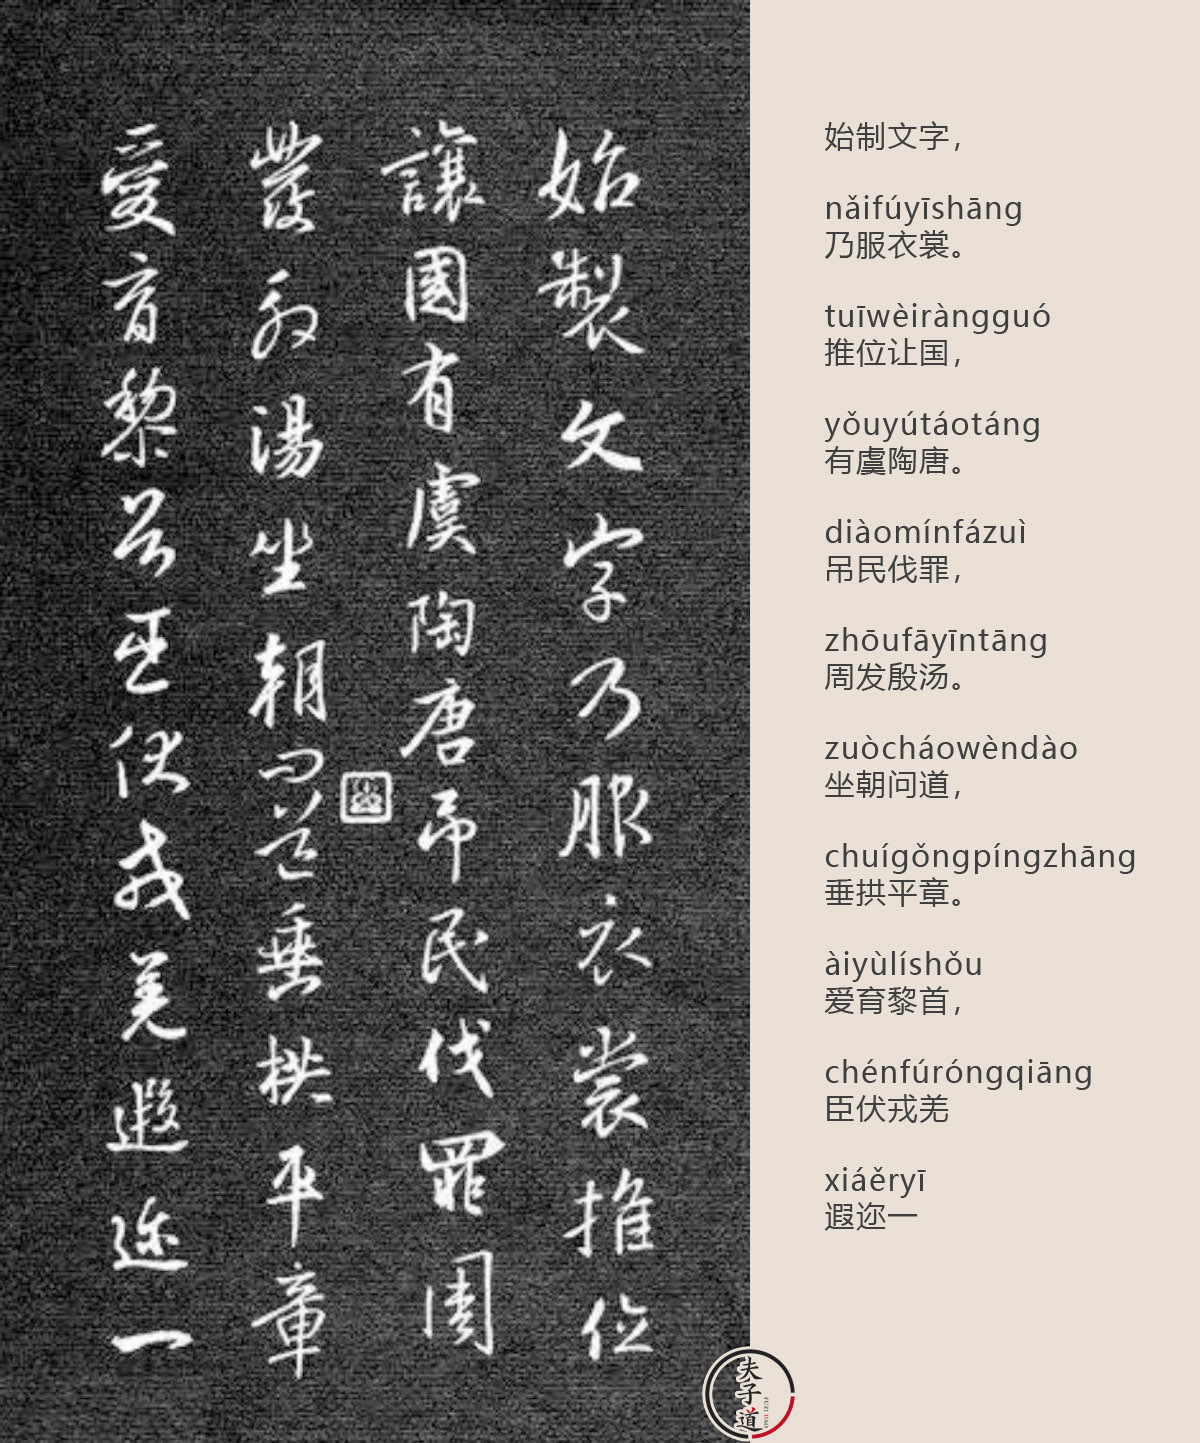 始製文字乃服衣裳推位
讓國有虞陶唐弔民伐罪周
發殷湯坐朝問道垂拱平章
愛育黎首臣伏戎羌遐迩一
始制文字，
nǎifúyīshāng
乃服衣裳。
tuīwèiràngguó
推位让国，
yǒuyútáotáng
有虞陶唐。
diàomínfázuì
吊民伐罪，
zhōufāyīntāng
周发殷汤。
zuòcháowèndào
坐朝问道，
chuígǒngpíngzhāng
垂拱平章。
àiyùlíshǒu
爱育黎首，
chénfúróngqiāng
臣伏戎羌
xiáěryī
遐迩一
夫子道
FUZI DAO